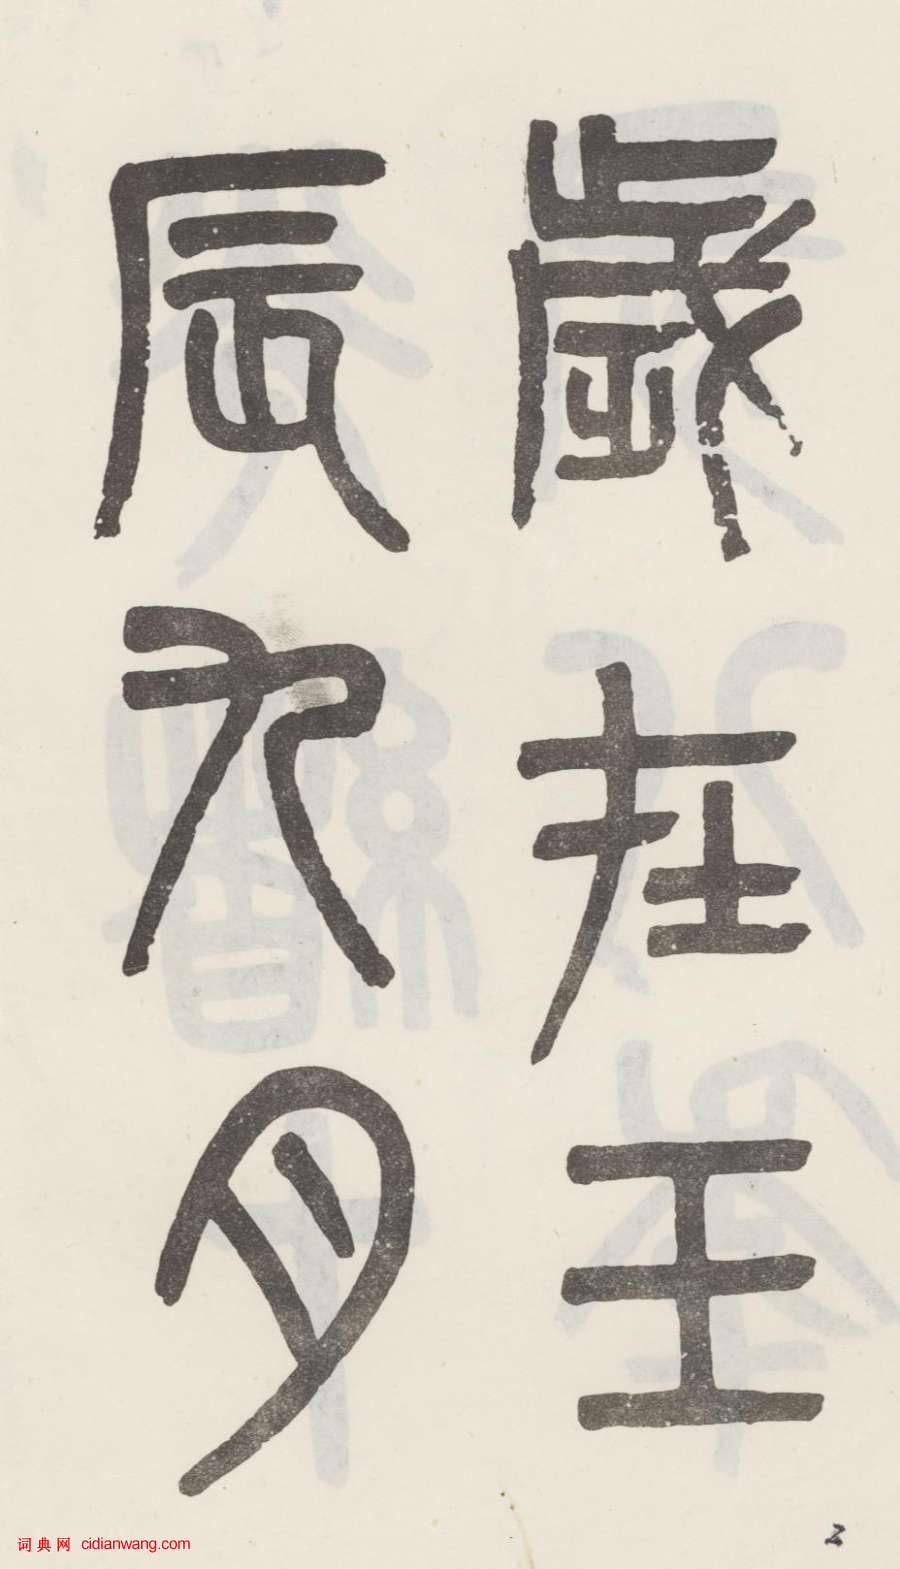 歲在壬
辰九月
2
词典网 cidianwang.com